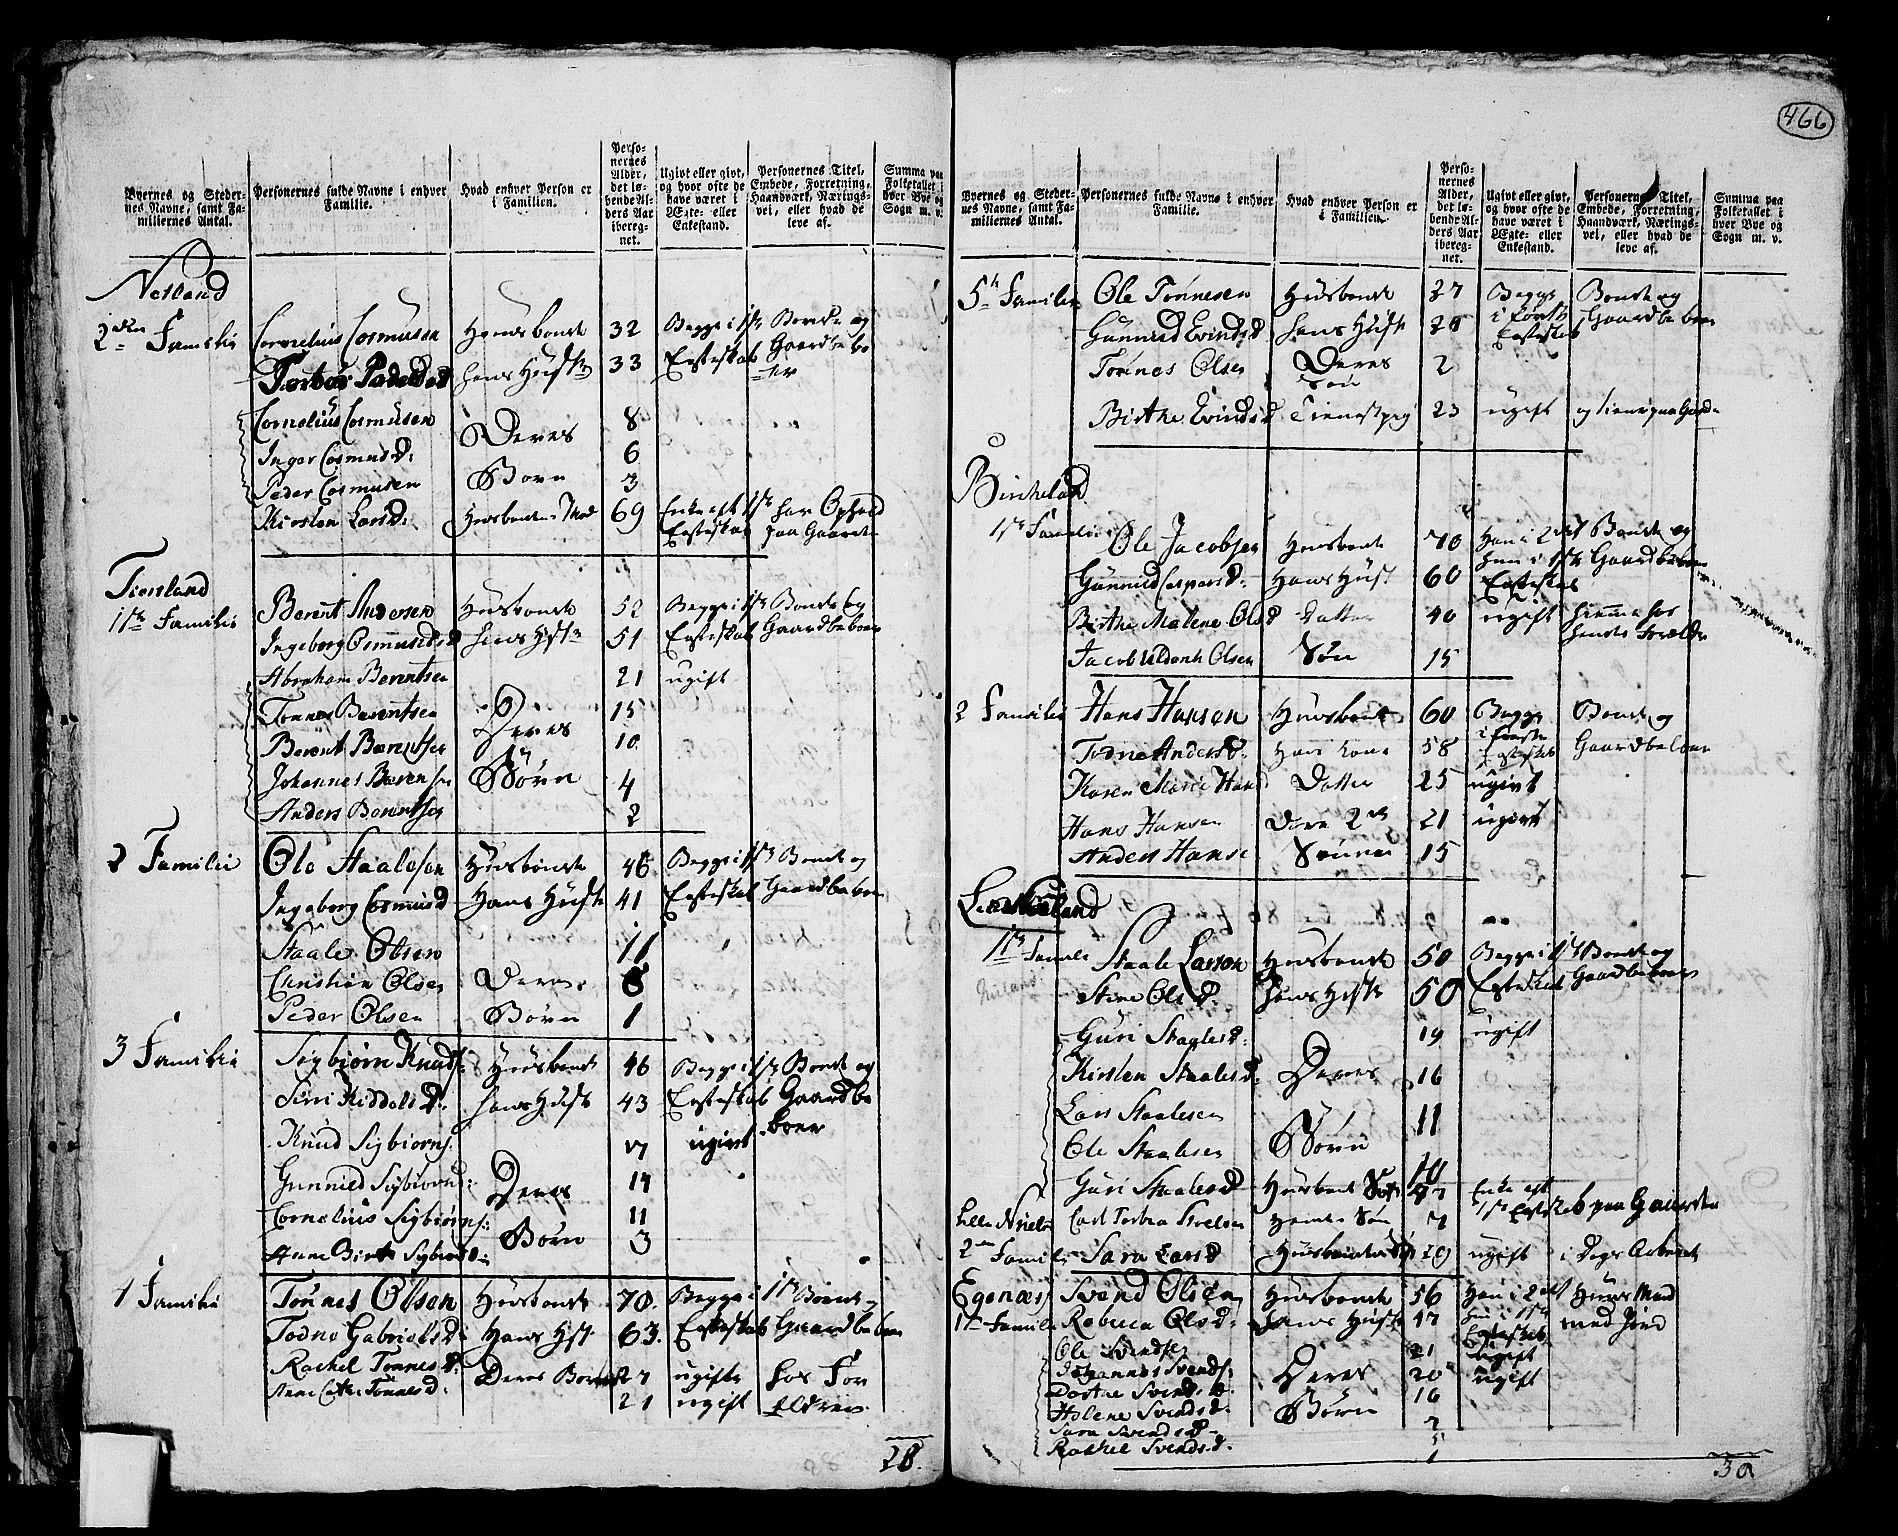 466
Byernes og Steder-
nes Navne, samt Fa-
miliernes Antal.
Personernes fulde Navne i enhver
Familie.
Hvad enhver Person er
i Familien.
Perso-
nernes
Alder,
det lø-
bende Al-
ders Aar
ibereg-
net.
Ugivt eller givt,
og hvor ofte de
have været i
Ægte- eller
Enkestand.
Personernes Titel,
Embede, Forretning,
Haandværk, Nærings-
vei, eller hvad de
leve af.
Summa paa
Folketallet i
hver Bye og
Sogn m. v.
Netland
2den Familie Cornelius Cosmussn Huusbonde 32 Begge i 1ste Bonde og
33 Egteskab Gaardbebo
er
Cornelius Cosmusen 8
Inger Cosmusd: Deres 6
Peder Cosmusen Børn 3
Kirsten Larsd: Huusbondens Mod 69 Enke eft 1ste har Ophold
Egteskab paa Gaarden
Tiorsland
1ste Familie Berent Andersen Huusbonde 52 Begge i 1ste Bonde og
Ingeborg Osmundsd hans Hustr 51 Egteskab Gaardbeboer
Abraham Berentsen 21 ugift
Tønnes Berentsen 15
Berent Berentsen Deres 10
Johannes Berensen Børn 4
Anders Berentsen 2
2 Familie Ole Staalesen Huusbonde 46 Begge i 1ste Bonde og
Ingeborg Cosmusd Hans Hustr 41 Egteskab Gaardbeboer
Staale Olsen 11
Christian Olsen Deres 8
Peder Olsen Børn 1
3 Familie Sigbiørn Knuds: Huusbonde 46 Begge i 1ste Bonde og
Siri Kiddelsd: hans Hustr 43 Egteskab Gaardbe
Knud Sigbiørns: 17 ugivt boer
Gunnild Sigbiørnsd: Deres 14
Cornelius Sigbiørns: Børn 11
Anne Birte Sigbiørnsd: 3
Familie Tønnes Olsen Huusbonde 70. Begge i 1ste Bonde og
Todne Gabrielsd: Hans Hst: 63. Egteskab Gaardbeboer
Rachel Tønnesd: Deres Børn 27 ugift hos For
Anne Cathr: Tønnesd: 21 ugift ældrene
28.
Byernes og Steder-
nes Navne, samt Fa-
miliernes Antal.
Personernes fulde Navne i enhver
Familie.
Hvad enhver Person er
i Familien.
Perso-
nernes
Alder,
det lø-
bende Al-
ders Aar
ibereg-
net.
Ugivt eller givt,
og hvor ofte de
have været i
Ægte- eller
Enkestand.
Personernes Titel,
Embede, Forretning,
Haandværk, Nærings-
vei, eller hvad de
leve af.
Summa paa
Folketallet i
hver Bye og
Sogn m. v.
5te Familie Ole Tønnesen Huusbonde 27 Begge Bonde og
Gunnild Evindsd hans Hustr i første Gaardbeboer
Egteskab
Tønnes Olsen Deres 2
Søn
Birthe Evindsd Tienestpig 23 ugift og tiener paa Gaard
Birkeland
1ste Familie Ole Jacobsen Huusbonde 70 Han i 2det Bonde og
Gunnild Caspersd: Hans Hustr 60 hun i 1ste Gaardbeboer
Egteskab
Birthe Malene Olsd Datter 40 ugift hiemme hos
Jacob Olsen Søn 15
2 Familie Hans Hansen Huusbonde 60 Begge Bonde og
Todne Andersd: Hans Kone 58 i første Gaardbeboer
Egteskab
Karen Marie Hansd Datter 25 ugivt
Hans Hansen Dere 2de 21 ugivt
Anders Hanse Sønner 15
1ste Familie Staale Larsen Huusbonde 50 Begge i 1ste Bonde og
Stine Olsd: hans Hustr 50 Egteskab Gaardbeboer
Guri Staalesd: 19 ugift
Kirsten Staalesd: Deres 16
Lars Staalesen 11
Ole Staalesen Børn 10
Guri Staalesd Huusbond 47 Enke eft
Hendes Søn 7 1ste Egteskab paa Gaarden
2den Familie Sara Larsd ugift i Dags Arbeide
Egenæs Svend Olsen Huusbonde 56 Han i 2det Huus Mand
1ste Familie Rebecca Olsd: Hans Hustr 47 hun i 1ste med Jord
Egteskab
Ole Svendsen 21 ugift
Johannes Svends: Deres 20 ugift
Dorthe Svendsd: Børn 16
Helene Svendsd:
Sara Svendsd
Rachel Svendsd. 1
30